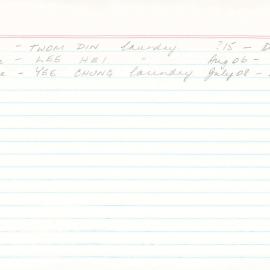 - TWOM DIN laundry ?15 - D
- LEE HEI " Aug 06 -
- YEE CHUNG laundry July 08 -